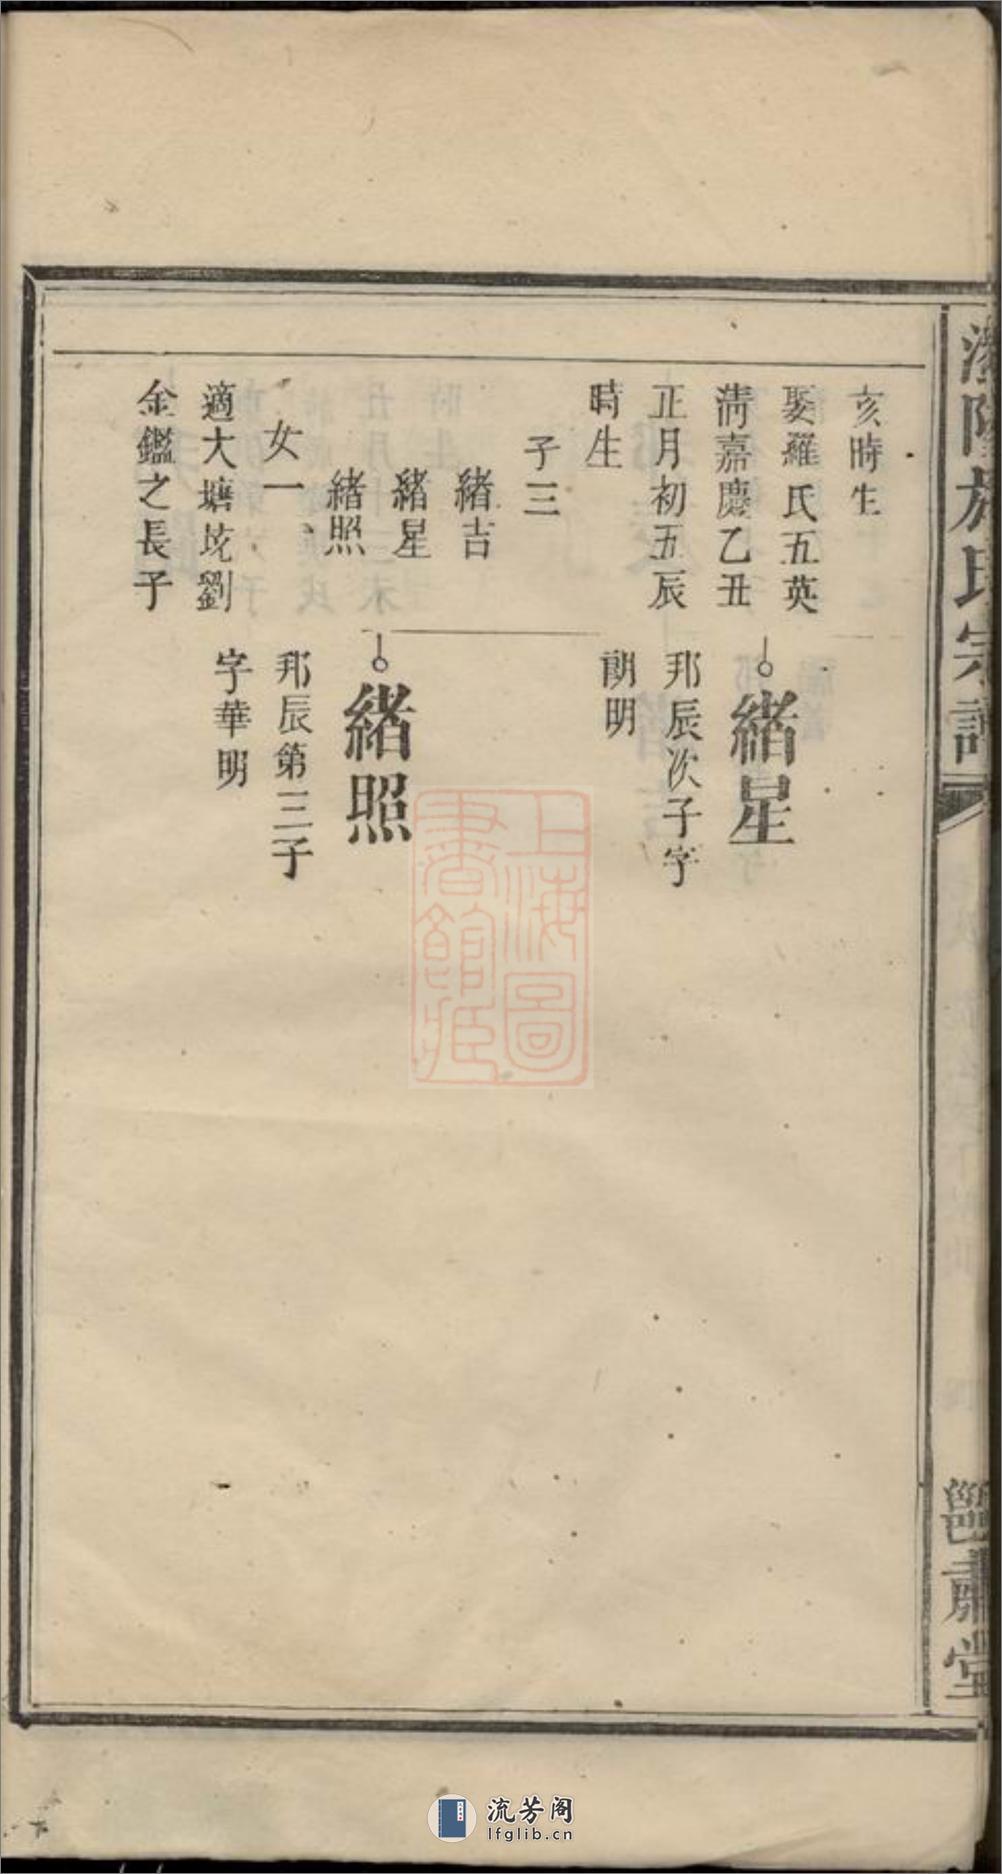 亥時生
娶羅氏五英
清嘉慶乙丑
正月初五辰
時生
子三
緒吉
緒星
緒照
女一
適大塘坑劉
金鑑之長子
緒星
邦辰次子字
朗明
緒照
邦辰第三子
字華明
施氏宗譜
肅堂
上海圖
書館藏
流芳阁
lfglib.cn